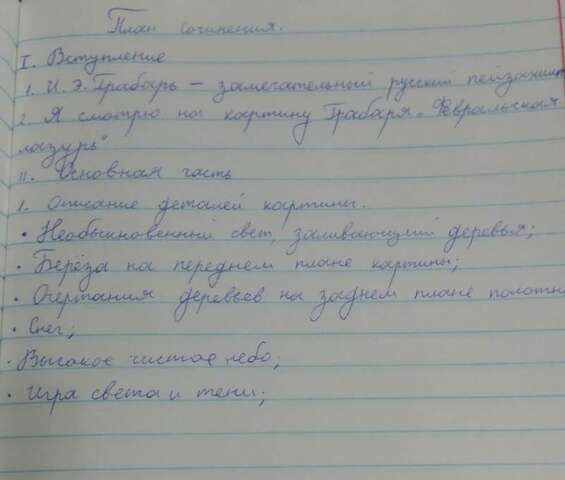 План сочинения.
I. Вступление
1. И. Э. Грабарь – замечательный русский пейзажист
2. Я смотрю на картину Грабаря „Февральская
лазурь"
II. Основная часть
1. Описание деталей картины.
• Необыкновенный свет, заливающий деревья;
• Берёза на переднем плане картины;
• Очертания деревьев на заднем плане полотна
• Снег;
• Высокое чистое небо;
• Игра света и тени;